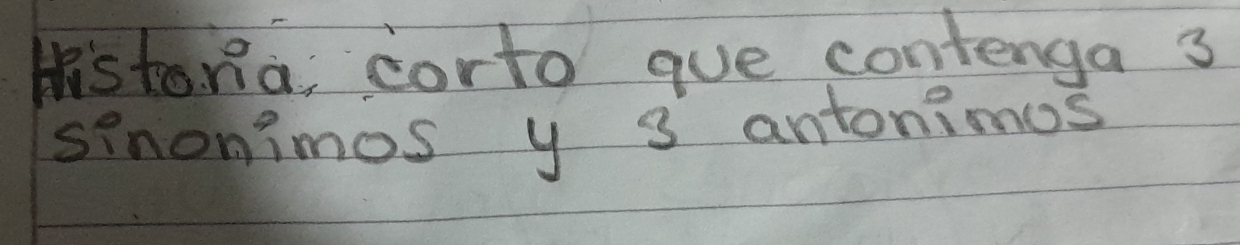 Historia, corto que contenga 3
sinonimos y 3 antonimos